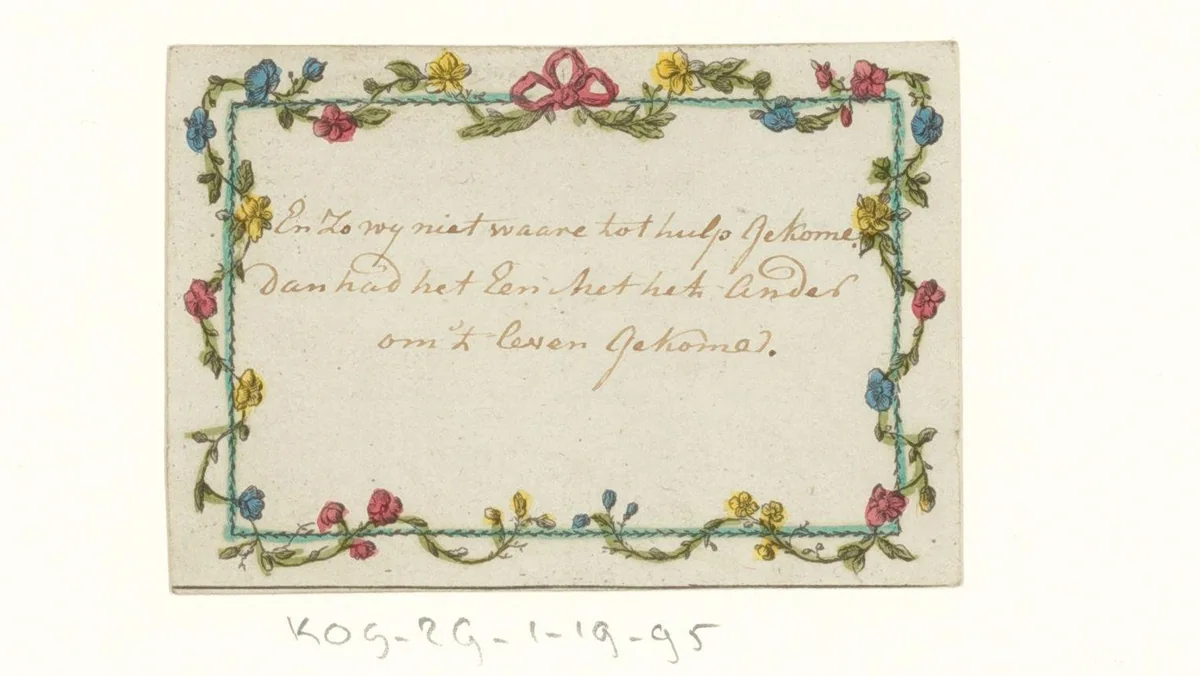 En Zo wy niet waare tot hulp gekome,
Dan had het Een Met het Ander
om 't leven gekomen.
KOG-ZG-1-19-95